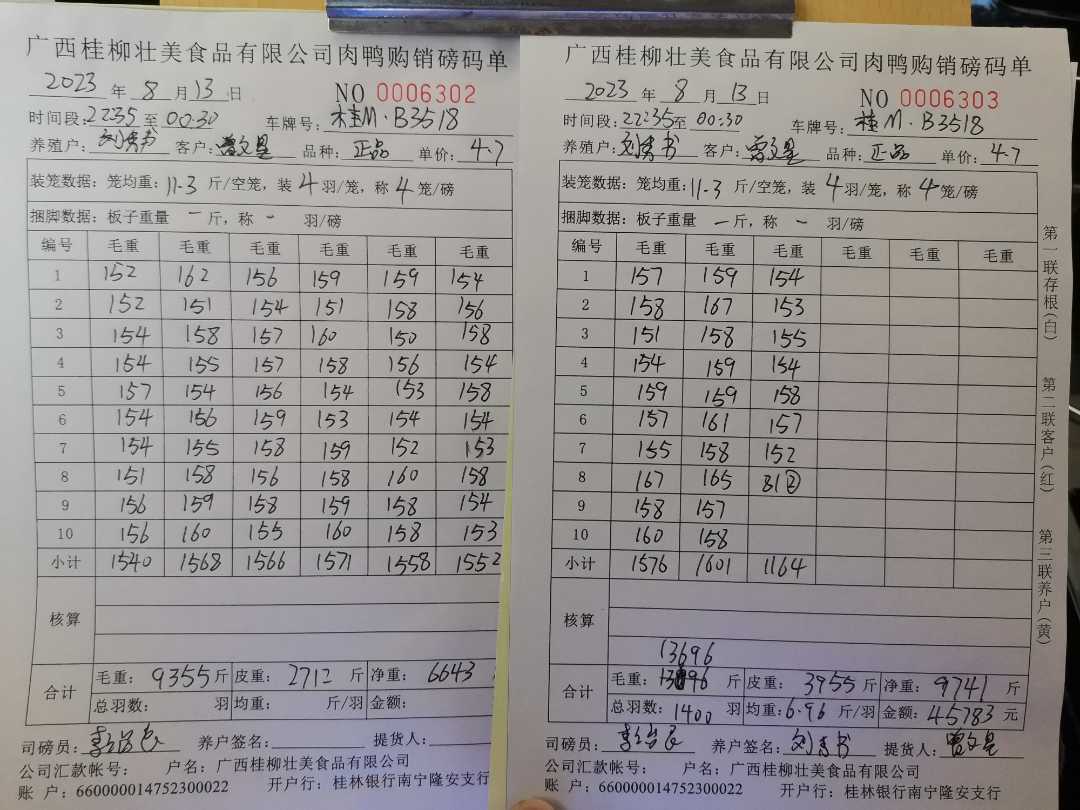 广西桂柳壮美食品有限公司肉鸭购销磅码单
2023 年 8 月 13 日 NO 0006302
时间段:22:35 至 00:30 车牌号: 桂M·B3518
养殖户: 刘秀书 客户: 曾文星 品种: 正品 单价: 4.7
装笼数据: 笼均重: 11.3 斤/空笼, 装 4 羽/笼, 称 4 笼/磅
捆脚数据: 板子重量 一 斤, 称 一 羽/磅
编号 毛重 毛重 毛重 毛重 毛重 毛重
1 152 162 156 159 159 154
2 152 151 154 151 158 156
3 154 158 157 160 150 158
4 154 155 157 158 156 154
5 157 154 156 154 153 158
6 154 156 159 153 154 154
7 154 155 158 159 152 153
8 151 158 156 158 160 158
9 156 159 158 159 158 154
10 156 160 155 160 158 153
小计 1540 1568 1566 1571 1558 1552
核算
合计
毛重: 9355 斤 皮重: 2712 斤 净重: 6643
总羽数: 羽 均重: 斤/羽 金额:
司磅员: 养户签名: 提货人:
公司汇款帐号: 户名: 广西桂柳壮美食品有限公司
账 户: 660000014752300022 开户行: 桂林银行南宁隆安支行
广西桂柳壮美食品有限公司肉鸭购销磅码单
2023 年 8 月 13 日 NO 0006303
时间段: 22:35 至 00:30 车牌号: 桂M·B3518
养殖户: 刘秀书 客户: 曾文星 品种: 正品 单价: 4.7
装笼数据: 笼均重: 11.3 斤/空笼, 装 4 羽/笼, 称 4 笼/磅
捆脚数据: 板子重量 一 斤, 称 一 羽/磅
编号 毛重 毛重 毛重 毛重 毛重 毛重
1 157 159 154
2 158 167 153
3 151 158 155
4 154 159 154
5 159 159 158
6 157 161 157
7 155 158 152
8 167 165 81②
9 158 157
10 160 158
小计 1576 1601 1164
核算
13696
合计
毛重: 13696 斤 皮重: 3955 斤 净重: 9741 斤
总羽数: 1400 羽 均重: 6.96 斤/羽 金额: 45783 元
司磅员: 养户签名: 刘秀书 提货人: 曾文星
公司汇款帐号: 户名: 广西桂柳壮美食品有限公司
账 户: 660000014752300022 开户行: 桂林银行南宁隆安支行
第一联存根(白)
第二联客户(红)
第三联养户(黄)